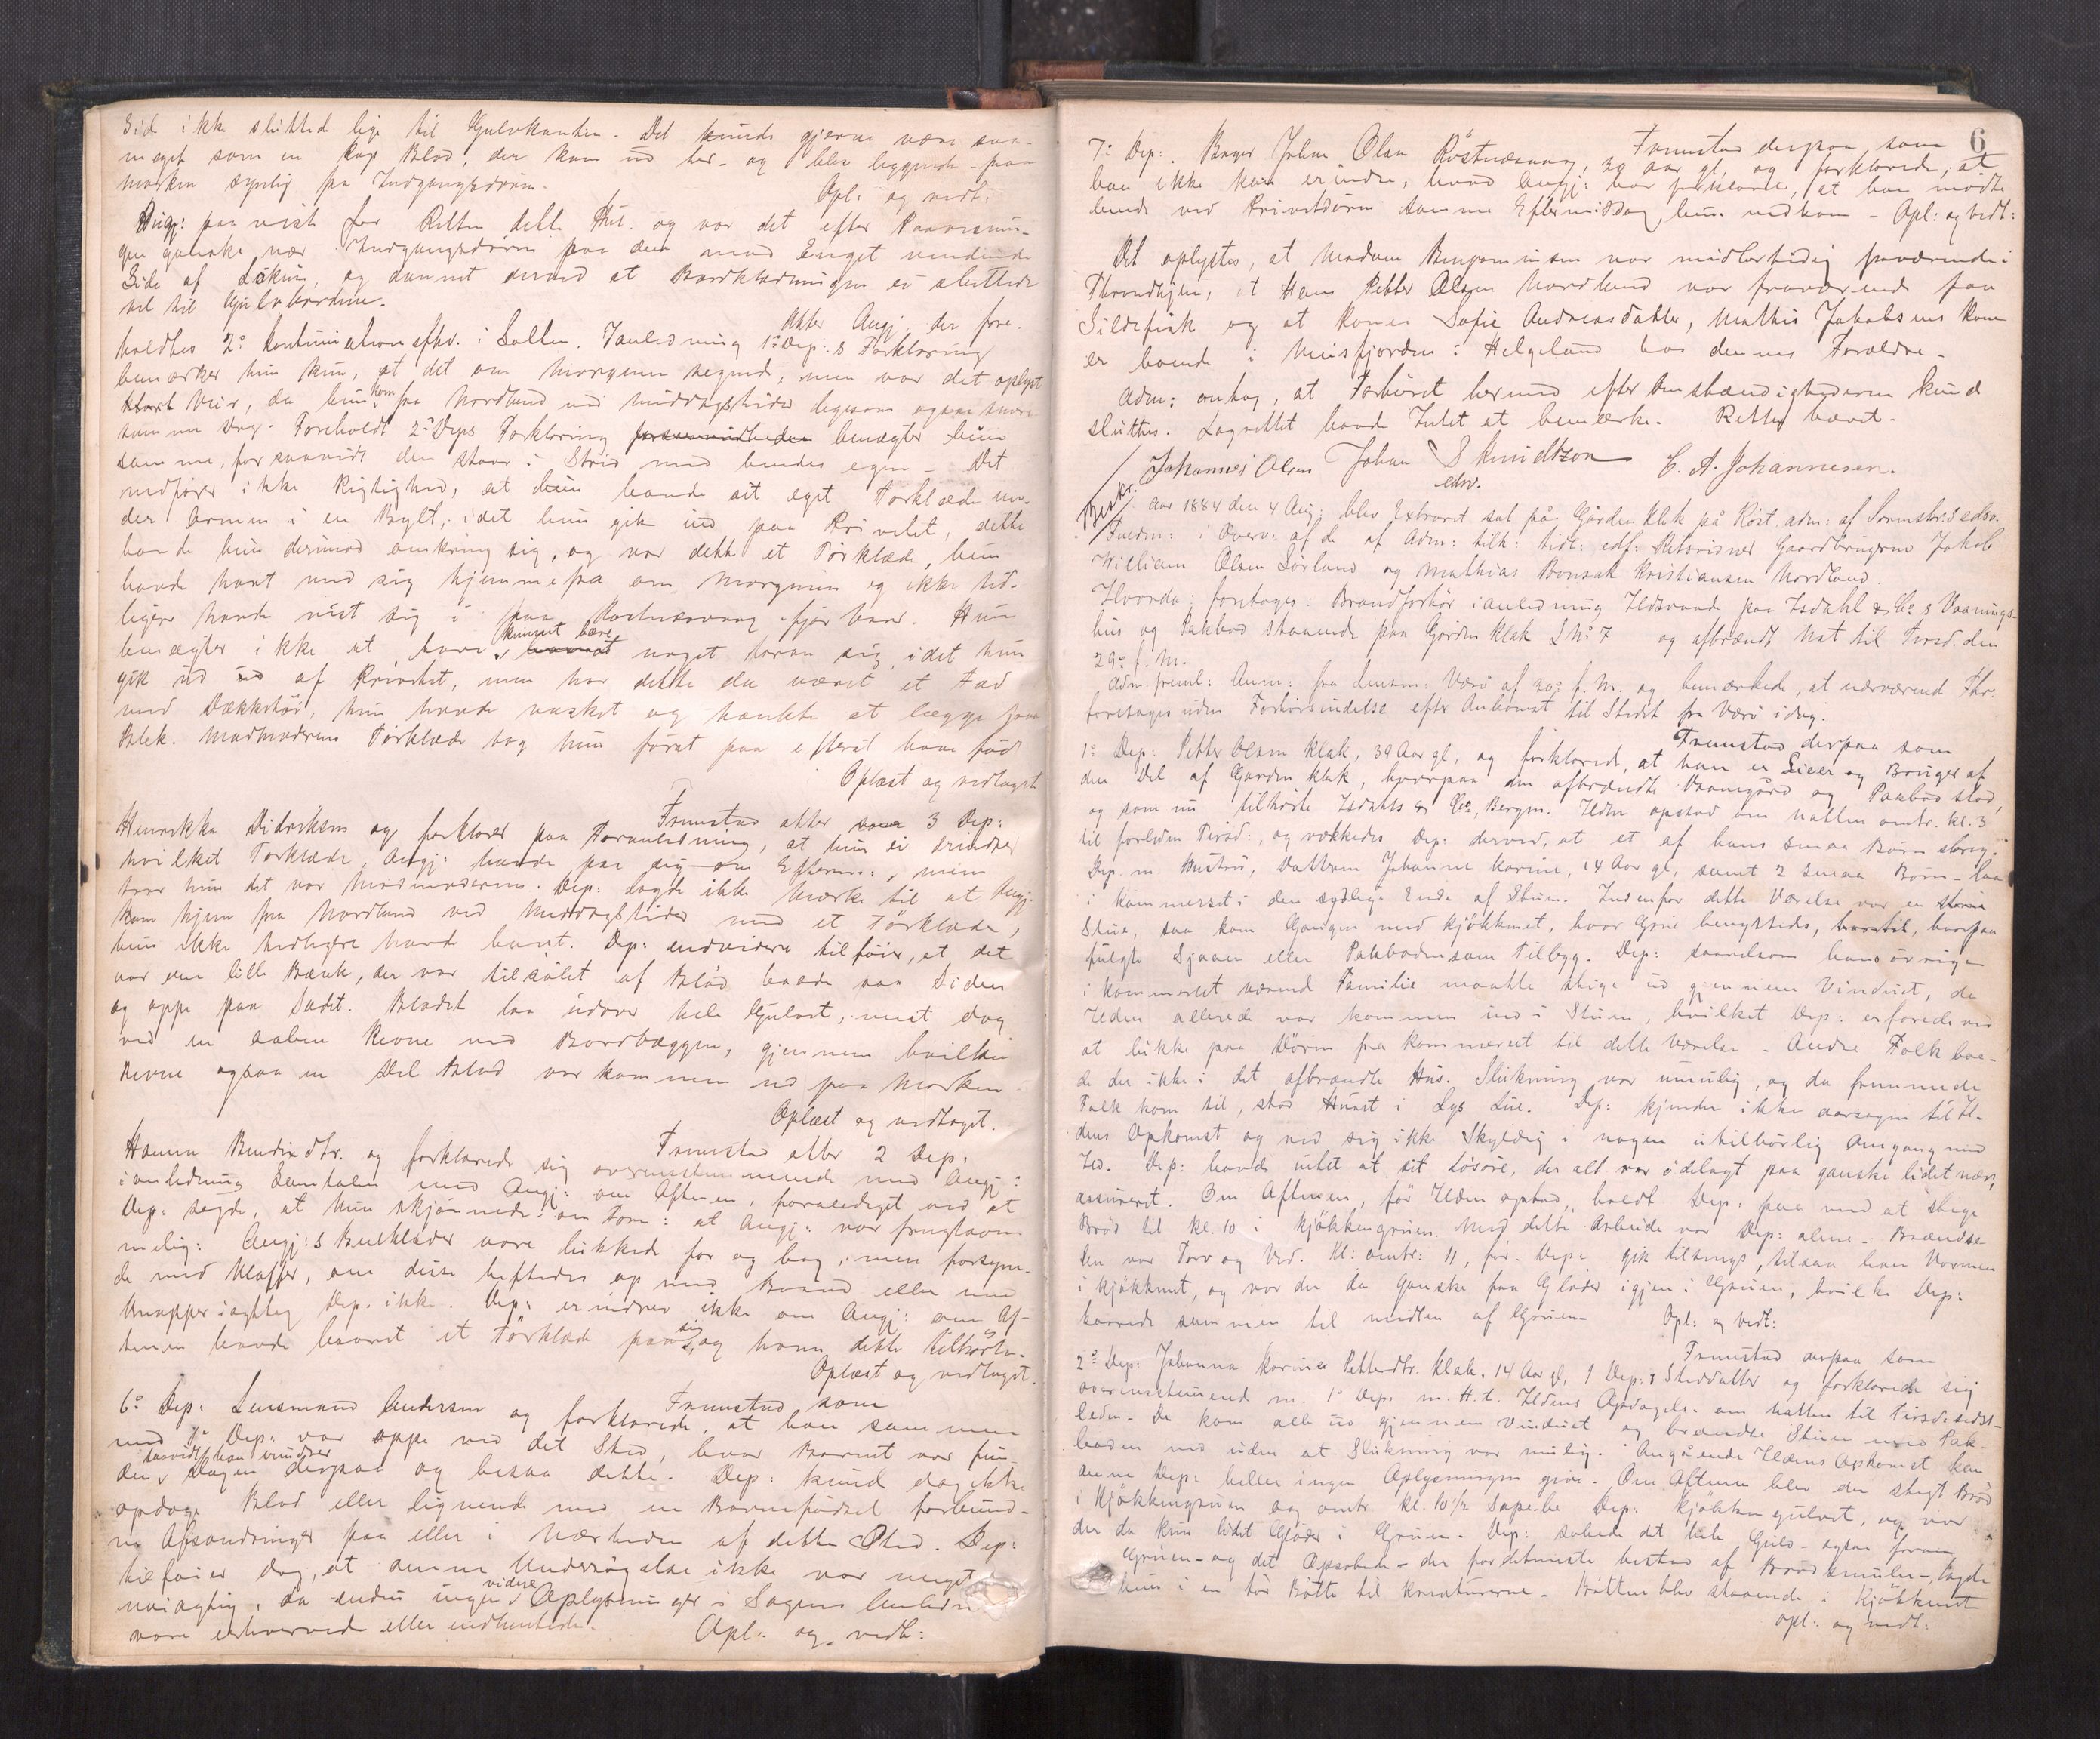 Sid ikke sluttet lige til Gulvkanten. Det kunde gjerne være saa-
meget som en Kop Blod, der kom ud her og blev liggende paa
Marken synlig fra Indgangsdøren.
Opl: og vedt:
Angj: paaviste for Retten dette Hul og var det efter Paavisnin-
gen ganske nær Indgangsdøren paa den mod Enget vendende
Side af og dannet derved at Bordklædningen ei sluttede
til Gulvbordene.
Atter Angj. der fore-
holdtes 2: Kontinuationsfhv. i Sallen. Ianledning 1: Dep:s Forklaring
bemærker hun kun, at det om Morgenen regned, men var det oplyst
klart Veir, da hun kom fra Nordland ved Middagstider ligesom ogsaa
samme Dag. Foreholdt 2: Deps Forklaring benægter hun
samme, forsaavidt den staar i Strid med hendes egen. Det
medfører ikke Rigtighed, at hun havde sit eget Forklæde un-
der Armen i en Bylt, idet hun gik ind paa Privetet, dette
havde hun derimod omkring sig, og var dette et Forklæde, hun
havde havt med sig hjemmefra om Morgenen og ikke tid-
ligere havde vist sig i paa Røstnæsvaag ifjor Vaar. Hun
benægter ikke at have kunnet bære noget foran sig, idet hun
gik ud af Privetet, men har dette da været et Fad
med Dækketøi, hun havde vasket og tænkte at lægge paa
Blek. Madmoderens Forklæde tog hun først paa efterat have fød
Oplæst og vedtaget
Fremstod atter 3 Dep:
Henrikka Didriksen og forklarer paa Foranledning, at hun ei erindrer
hvilket Forklæde, Angj: havde paa sig om Efterm:, men
tror hun det var Madmoderens. Dep: lagde ikke Mærke til at Angj.
kom hjem fra Nordland ved Middagstider med et Forklæde,
hun ikke tidligere havde havt. Dep: endvidere tilføier, at det
var den lille Bænk, der var tilsølet af Blod baade paa Siden
og oppe paa Sædet. Blodet laa udover hele Gulvet, mest dog
ved en aaben Revne ved Bordvæggen, gjennem hvilken
Revne ogsaa en Del Blod var kommen ud paa Marken
Oplæst og vedtaget.
Fremstod atter 2 Dep:
Hanna Bendixdtr. og forklarede sig overensstemmende med Angj:
ianledning Samtalen med Angj: om Aftenen, foranlediget ved at
Dep: sagde, at hun skjønnede om Form: at Angj: var frugtsom-
melig: Angj:s Benklæder vare lukkede for og bag, men forsyne-
de med Klaffer, om disse heftedes op med Baand eller med
Knapper iagttog Dep. ikke. Dep: erindrer ikke om Angj: om Af-
tenen havde baaret et Forklæde paa sig, og hvem dette tilhørte.
Oplæst og vedtaget.
Fremstod som
6: Dep: Lensmand Andersen og forklarede, at han sammen
med 1: Dep: var oppe ved det Sted, hvor Barnet var fun-
den, saavidt han erindrer Dagen derpaa og besaa dette. Dep: kunde dog ikke
opdage Blod eller lignende med en Barnefødsel forbund-
ne Afsondringer paa eller i Nærheden af dette Sted. Dep:
tilføier dog, at denne Undersøgelse ikke var meget
nøiagtig, da endnu ingen videre Oplysninger i Sagens Anledn
vare erhvervede eller indhentede. Opl: og vedt:
6
Fremstod derpaa som
7: Dep: Bager Johan Olsen Røstnæsvaag, 30 aar gl, og forklarede, at
han ikke kan erindre, hvad Angj: har forklaret, at han mødte
hende ved Privetdøren samme Eftermiddag, hun nedkom. Opl: og vedt:
Det oplystes, at Madam Benjaminsen var midlertidig fraværende i
Throndhjem, at Hans Petter Olsen Nordland var fraværende paa
Sildefisk og at Konen Sofie Andreasdatter, Mathis Jakobsens Kone
er boende i Misfjorden i Helgeland hos dennes Forældre.
Adm: antog, at Forhøret hermed efter Omstændighederne kunde
sluttes. Lagrettet havde Intet at bemærke. Retten hævet.
Johannes Olsen Johan Schmidtzon C. A. Johannesen.
edsv.
Beskr.
Aar 1884 den 4 Aug: blev Extraret sat på Gården Klak på Røst. adm: af Sorenskr:s edsv.
Fuldm: i Overv: af de af Adm: tilk: tidl: edf: Retsvidner Gaardbrugerne Jakob
William Olsen Sørland og Mathias Bonsak Kristiansen Nordland.
Hvorda: foretoges: Brandforhør ianledning Ildsvaade paa Isdahl & Co s Vaanings-
hus og Pakbod staaende paa Gården Klak L No 7 og afbrændt Nat til Tirsd: den
29: f. M.
Adm. freml: Anm: fra Lensm: Værø af 30: f. M. og bemærkede, at nærværend Fhr.
foretages uden Forhørsindelse efter Ankomst til Stedet fra Værø idag.
Fremstod derpaa som
1: Dep: Petter Olsen Klak, 39 Aar gl, og forklarede, at han er Leier og Bruger af
den Del af Gården Klak, hvorpaa den afbrændte Vaaningård og Pakbod stod,
og som nu tilhørte Isdahls & Co, Bergen. Ilden opstod om Natten omtr. kl. 3
til forleden Tirsd:, og vækkedes Dep: derved, at et af hans smaa Børn skreg.
Dep. m. Hustru, Datteren Johanne Karine, 14 Aar gl, samt 2 smaa Børn laa
i Kammerset i den sydlige Ende af Stuen. Indenfor dette Værelse var en større
Stue, saa kom Gangen med Kjøkkenet, hvor Grue benyttedes, hvorpaa
fulgte Sjaaen eller Pakboden som Tilbyg. Dep: saavelsom hans øvrige
i Kammerset værende Familie maatte stige ud gjennem Vinduet, da
Ilden allerede var kommen ind i Stuen, hvilket Dep: erfarede ved
at lukke paa Døren fra Kammerset til dette Værelse. Andre Folk boe-
de der ikke i det afbrændte Hus. Slukning var umulig, og da fremmede
Folk kom til, stod Huset i Lys Lue. Dep: kjender ikke Aarsagen til Il-
dens Opkomst og ved sig ikke Skyldig i nogen utilbørlig Omgang med
Ild. Dep: havde intet af sit Løsøre, der alt var ødelagt paa ganske lidet nær,
assureret. Om Aftenen, før Ilden opstod, holdt Dep: paa med at stege
Brød til kl. 10 i Kjøkkengruen. Med dette Arbeide var Dep: alene. Brændse-
len var Torv og Ved. Kl: omtr: 11, før Dep: gik tilsengs, tilsaa han Varmen
i Kjøkkenet, og var der da ganske faa Gløder igjen i Gruen, hvilke Dep:
karrede sammen til midten af Gruen. Opl: og vedt:
Fremstod derpaa som
2: Dep: Johanna Karine Petterdtr. Klak, 14 Aar gl, 1 Dep:s Steddatter og forklarede sig
overensstemmend m. 1: Dep. m. H. t. Ildens Opdagels. om Natten til Tirsd: sidst-
leden. De kom alle ud gjennem Vinduet og brændte Stuen med Pak-
boden ned uden at Slukning var mulig. Angående Ildens Opkomst kan
denne Dep: heller ingen Oplysninger give. Om Aftenen blev der stegt Brød
i Kjøkkengruen og omtr. kl. 10 1/2 Dep: Kjøkkengulvet, og var
der da kun lidet Gløder i Gruen. Dep: det hele Gulv - ogsaa foran
Gruen - og det Opsobede - der fordetmeste bestod af Brødsmuler -, lagde
hun i en tør Bøtte til Kreaturerne. Bøtten blev staaende i Kjøkkenet
Opl: og vedt: